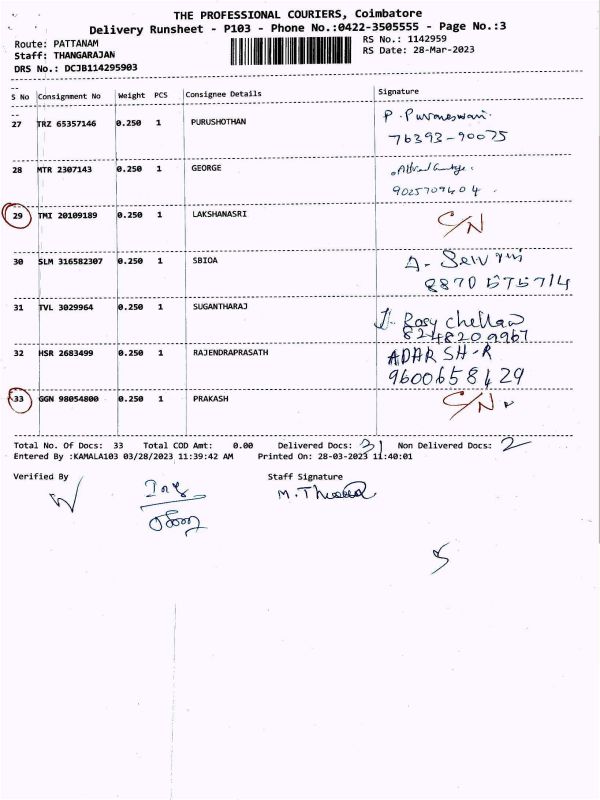 THE PROFESSIONAL COURIERS, Coimbatore
Delivery Runsheet - P103 - Phone No.:0422-3505555 - Page No.:3
Route: PATTANAM
RS No.: 1142959
Staff: THANGARAJAN
RS Date: 28-Mar-2023
DRS No.: DCJB114295903
S No Consignment No Weight PCS Consignee Details Signature
27 TRZ 65357146 0.250 1 PURUSHOTHAN P. Puraneswari
76393-90075
28 MTR 2307143 0.250 1 GEORGE
9025709404
29 TMI 20109189 0.250 1 LAKSHANASRI C/N
30 SLM 316582307 0.250 1 SBIOA A- Selvi
8870575714
31 TVL 3029964 0.250 1 SUGANTHARAJ J. Rosy Chellam
8248209967
32 HSR 2683499 0.250 1 RAJENDRAPRASATH ADARSH-R
9600658429
33 GGN 98054800 0.250 1 PRAKASH C/N
Total No. Of Docs: 33 Total COD Amt: 0.00 Delivered Docs: 31 Non Delivered Docs: 2
Entered By :KAMALA103 03/28/2023 11:39:42 AM Printed On: 28-03-2023 11:40:01
Verified By Staff Signature